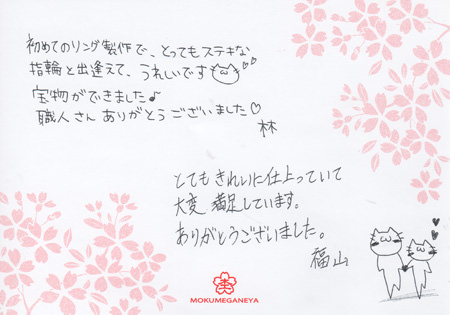 初めてのリング製作で、とってもステキな
指輪と出逢えて、うれしいです♡♡
宝物ができました♪
職人さん ありがとうございました♡
林
とてもきれいに仕上っていて
大変 満足しています。
ありがとうございました。
福山
MOKUMEGANEYA